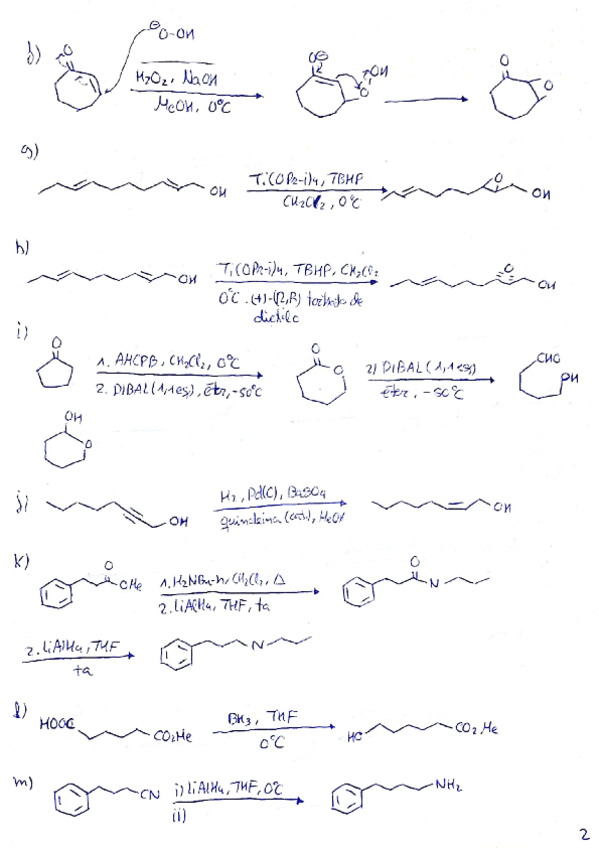 f)
O
⊖O-OH
H2O2, NaOH
MeOH, 0°C
O⊖
OH
O
O
O
g)
OH
Ti(OPr-i)4, TBHP
CH2Cl2, 0°C
O
OH
h)
OH
Ti(OPr-i)4, TBHP, CH2Cl2
0°C. (+)-(R,R) tartrato de
dietilo
O
OH
i)
O
1. AMCPB, CH2Cl2, 0°C
2. DIBAL (1,1eq), éter, -50°C
O
O
2) DIBAL (1,1eq)
éter, -50°C
CHO
OH
OH
O
j)
OH
H2, Pd(C), BaSO4
quinoleina (cat.), MeOH
OH
k)
O
OMe
1. H2NBu-n, CH2Cl2, Δ
2. LiAlH4, THF, ta
O
N
2. LiAlH4, THF
ta
N
l)
HOOC
CO2Me
BH3, THF
0°C
HO
CO2Me
m)
CN
i) LiAlH4, THF, 0°C
ii)
NH2
2